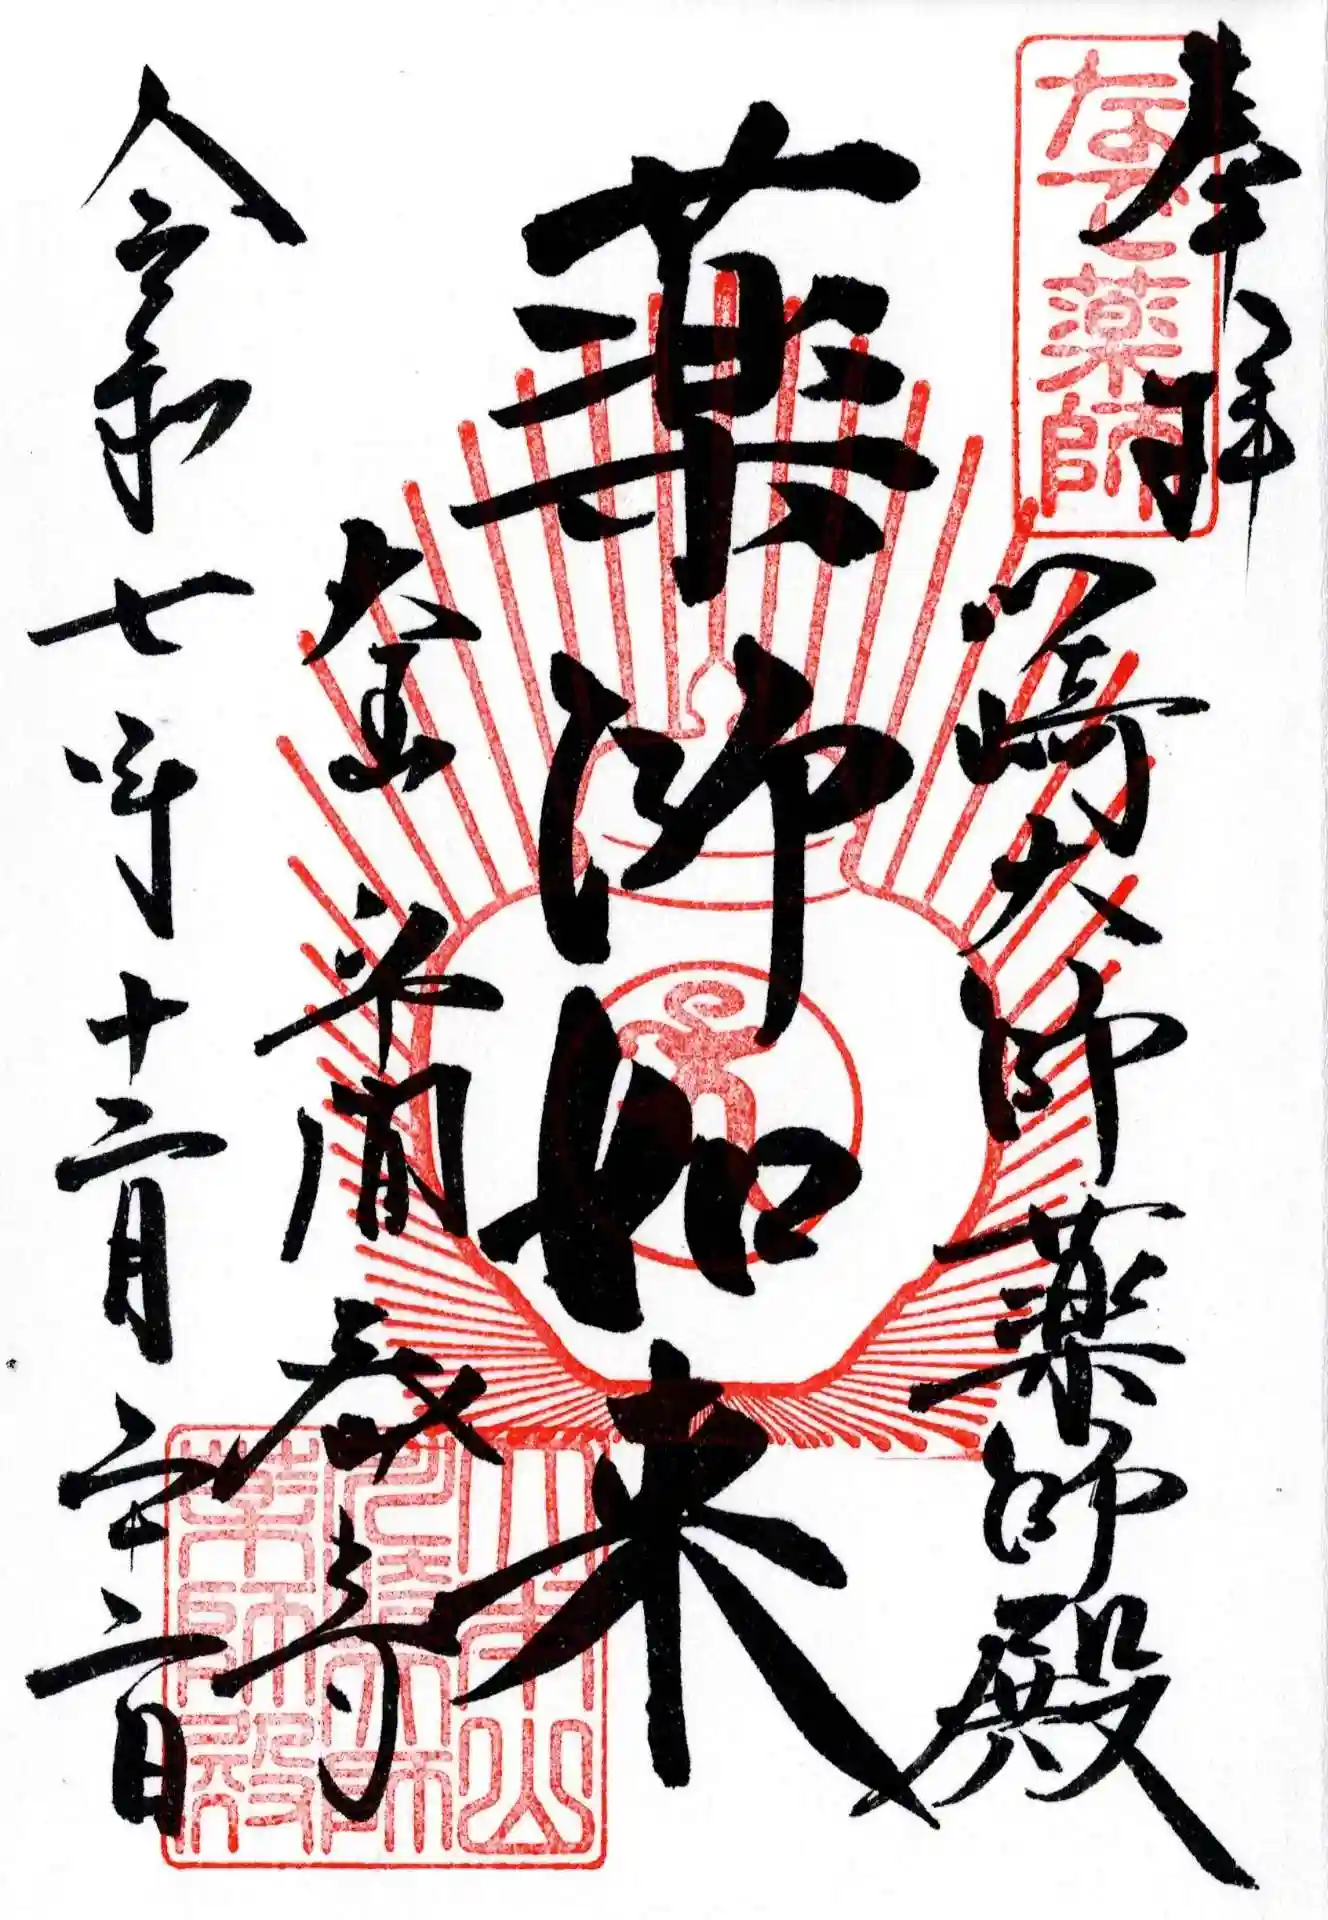 奉拝
なで薬師
川崎大師薬師殿
薬師如来
令和七年十二月二十二日
大本山
川崎大師
薬師殿